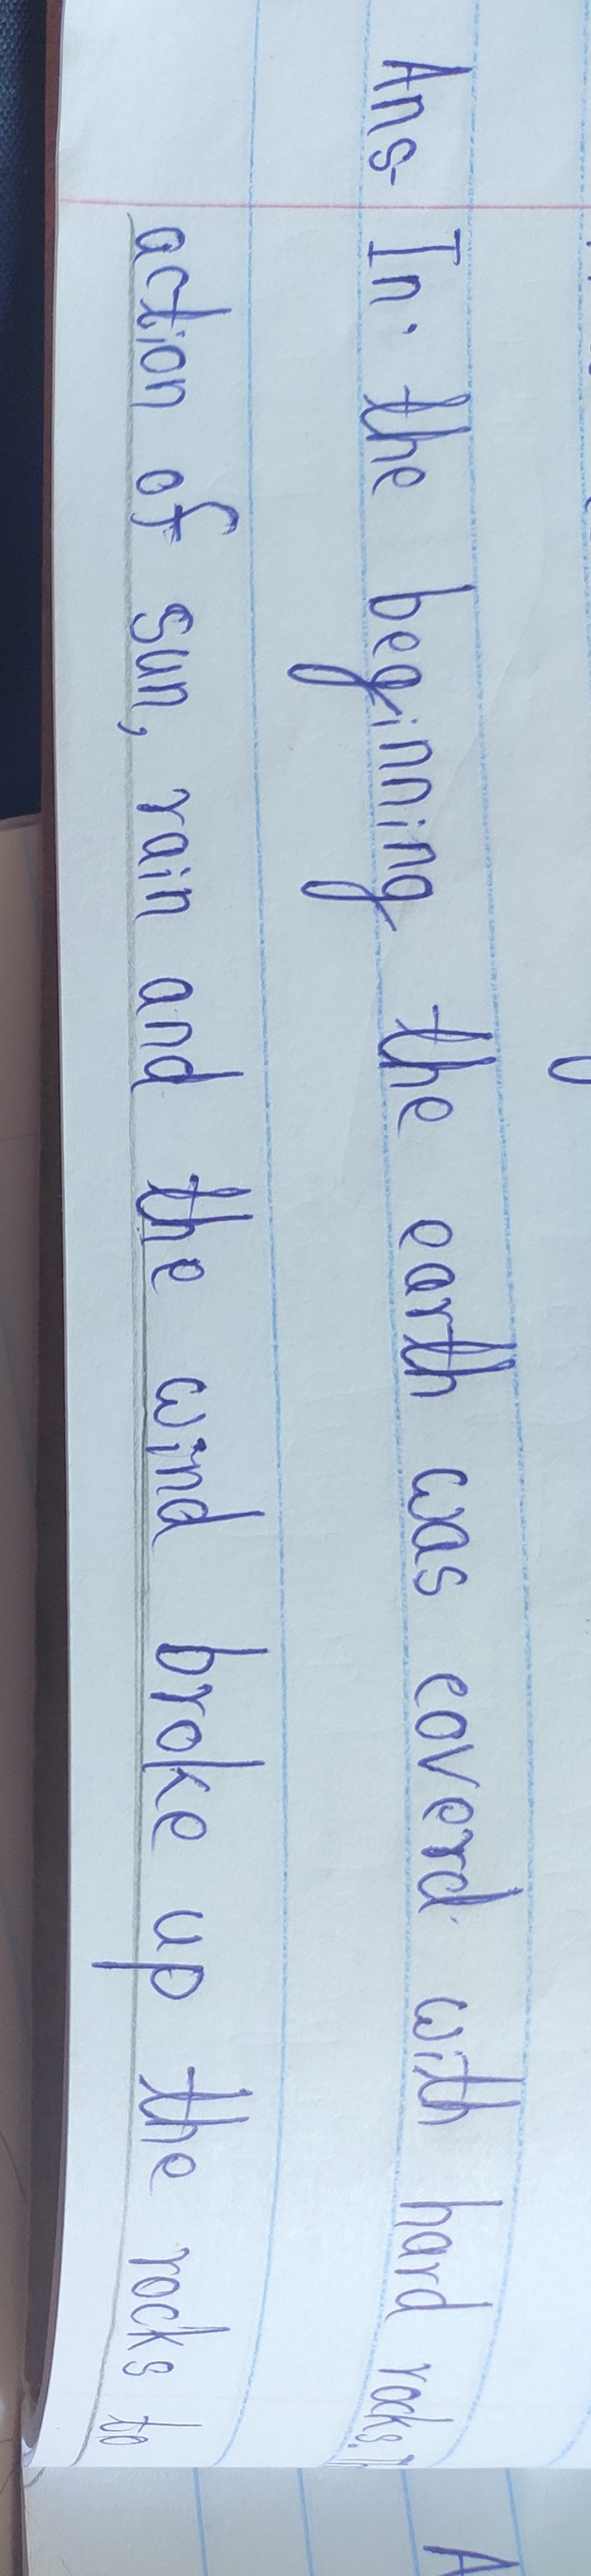 Ans- In the beginning the earth was coverd with hard rocks.
action of sun, rain and the wind broke up the rocks to